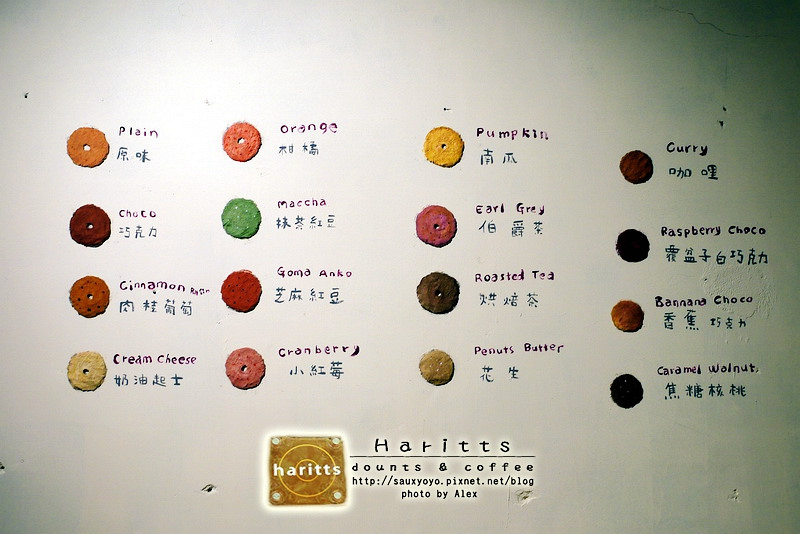 Plain
原味
Choco
巧克力
Cinnamon Raisin
肉桂葡萄
Cream Cheese
奶油起士
Orange
柑橘
Maccha
抹茶紅豆
Goma Anko
芝麻紅豆
Cranberry
小紅莓
Pumpkin
南瓜
Earl Grey
伯爵茶
Roasted Tea
烘焙茶
Penuts Butter
花生
Curry
咖哩
Raspberry Choco
覆盆子白巧克力
Bannana Choco
香蕉巧克力
Caramel Walnut
焦糖核桃
haritts
Haritts
dounts & coffee
http://sauxyoyo.pixnet.net/blog
photo by Alex